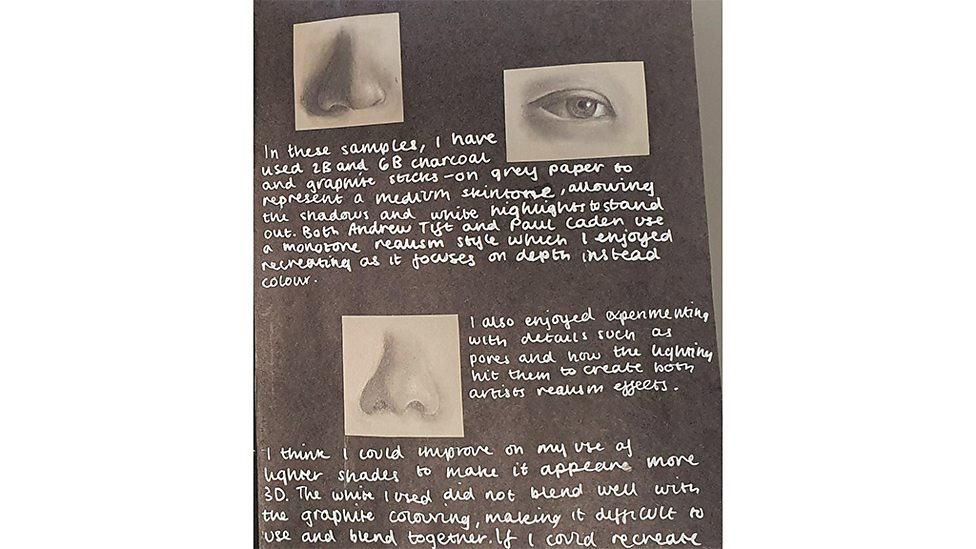 In these samples, I have
used 2B and 6B charcoal
and graphite sticks - on grey paper to
represent a medium skintone, allowing
the shadows and white highlights to stand
out. Both Andrew Tift and Paul Caden use
a monotone realism style which I enjoyed
recreating as it focuses on depth instead
colour.
I also enjoyed experimenting
with details such as
pores and how the lighting
hit them to create both
artists realism effects.
I think I could improve on my use of
lighter shades to make it appeare more
3D. The white I used did not blend well with
the graphite colouring, making it difficult to
use and blend together. If I could recreate